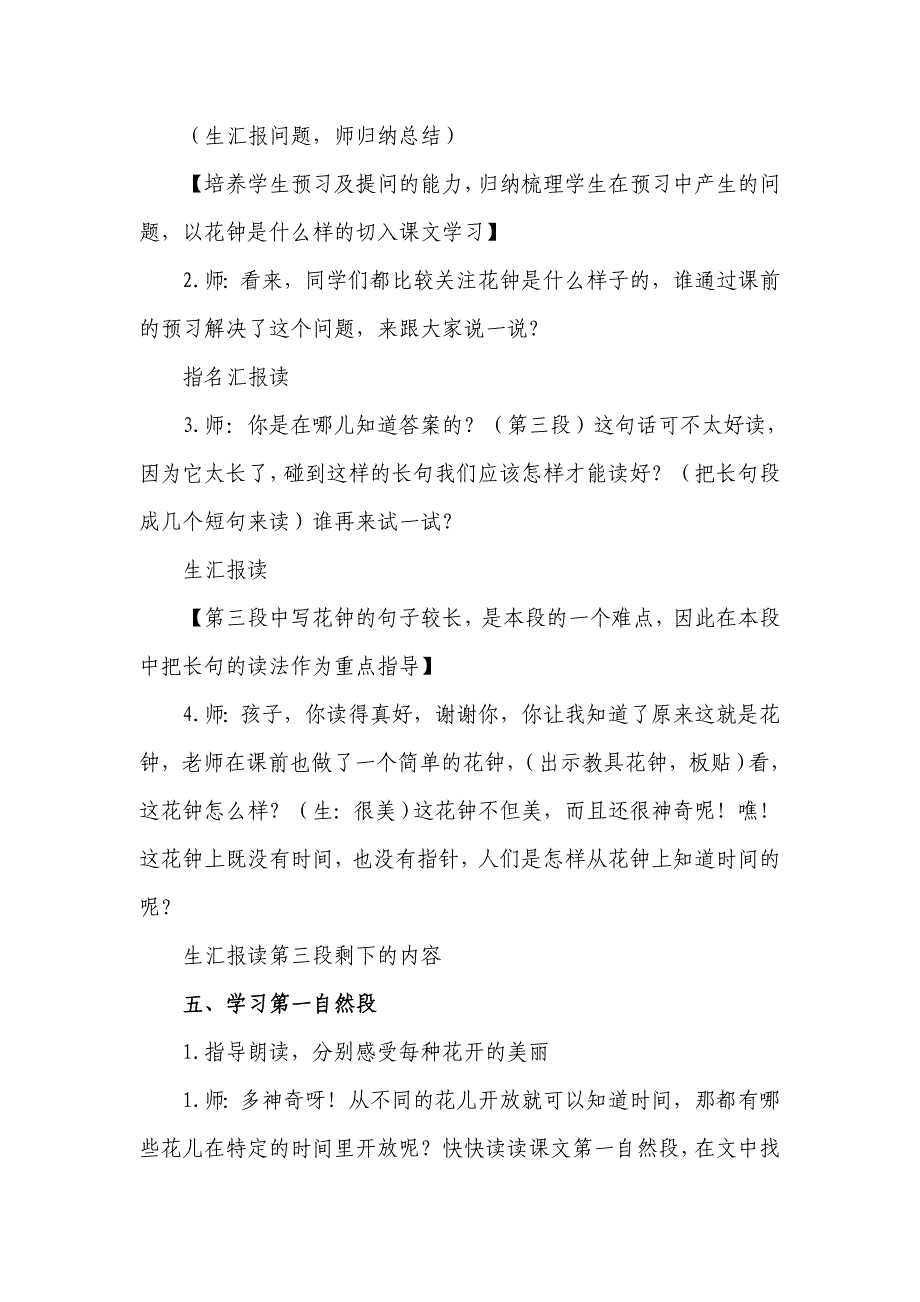 （生汇报问题，师归纳总结）
【培养学生预习及提问的能力，归纳梳理学生在预习中产生的问
题，以花钟是什么样的切入课文学习】
2.师：看来，同学们都比较关注花钟是什么样子的，谁通过课前
的预习解决了这个问题，来跟大家说一说？
指名汇报读
3.师：你是在哪儿知道答案的？（第三段）这句话可不太好读，
因为它太长了，碰到这样的长句我们应该怎样才能读好？（把长句段
成几个短句来读）谁再来试一试？
生汇报读
【第三段中写花钟的句子较长，是本段的一个难点，因此在本段
中把长句的读法作为重点指导】
4.师：孩子，你读得真好，谢谢你，你让我知道了原来这就是花
钟，老师在课前也做了一个简单的花钟，（出示教具花钟，板贴）看，
这花钟怎么样？（生：很美）这花钟不但美，而且还很神奇呢！瞧！
这花钟上既没有时间，也没有指针，人们是怎样从花钟上知道时间的
呢？
生汇报读第三段剩下的内容
五、学习第一自然段
1.指导朗读，分别感受每种花开的美丽
1.师：多神奇呀！从不同的花儿开放就可以知道时间，那都有哪
些花儿在特定的时间里开放呢？快快读读课文第一自然段，在文中找